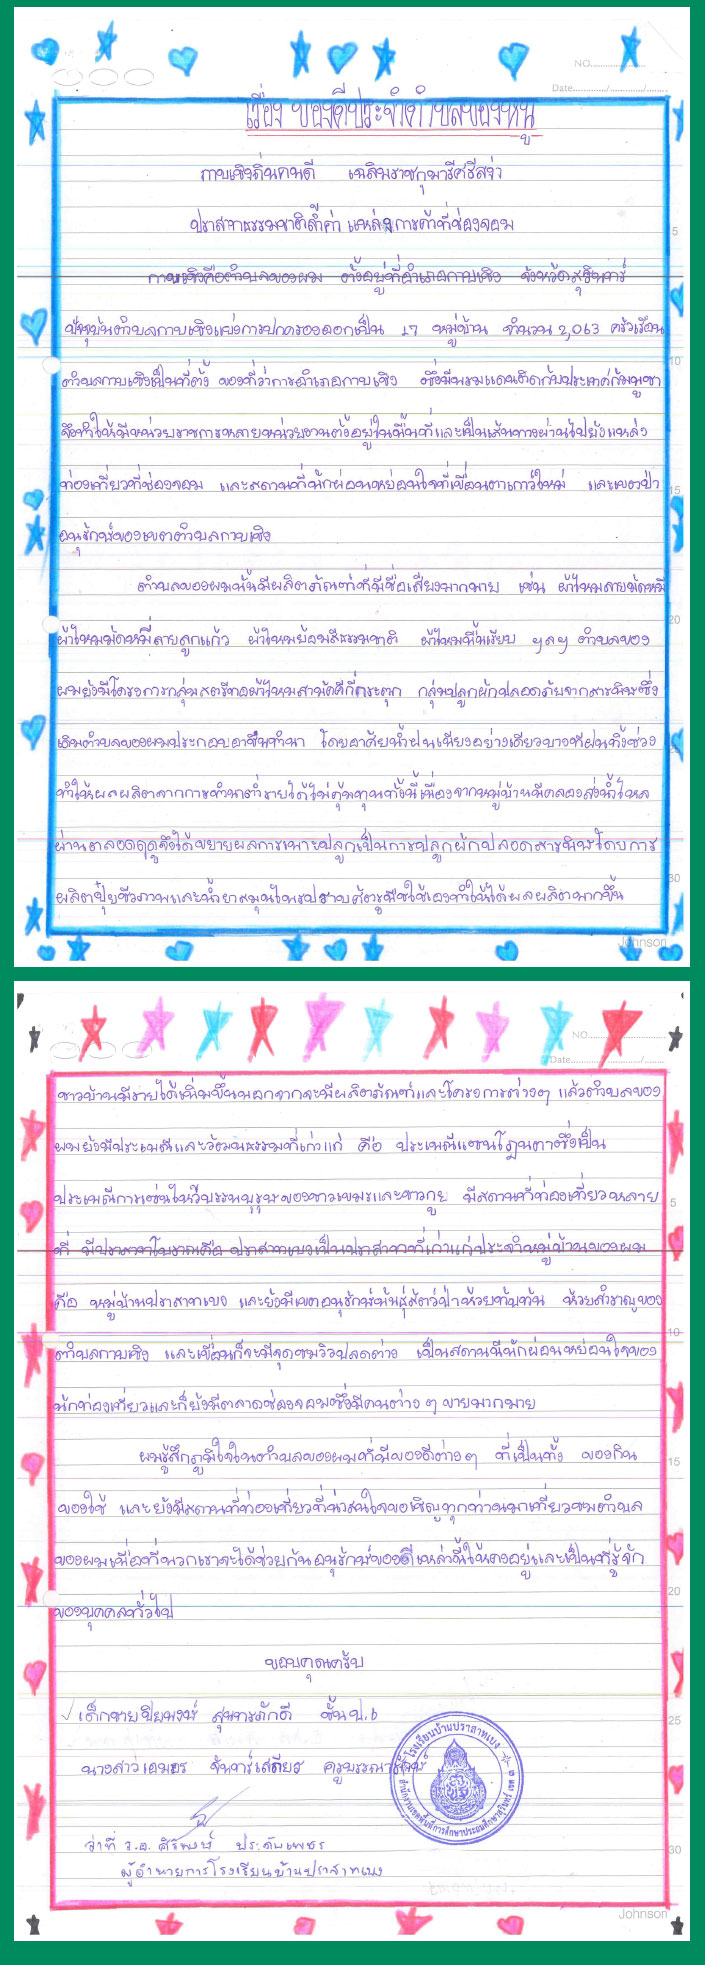 NO.
Date
เรื่อง ของดีประจำตำบลของหนู
กาบเชิงถิ่นคนดี เฉลิมราชกุมารีศรีสง่า
ปราสาทธรรมชาติล้ำค่า แหล่งการค้าที่ช่องจอม
กาบเชิงคือตำบลของผม ตั้งอยู่ที่อำเภอกาบเชิง จังหวัดสุรินทร์
ปัจจุบันตำบลกาบเชิงแบ่งการปกครองออกเป็น 17 หมู่บ้าน จำนวน 2,063 ครัวเรือน
ตำบลกาบเชิงเป็นที่ตั้ง ของที่ว่าการอำเภอกาบเชิง ซึ่งมีพรมแดนติดกับประเทศกัมพูชา
จึงทำให้มีหน่วยราชการหลายหน่วยงานตั้งอยู่ในพื้นที่และเป็นเส้นทางผ่านไปยังแหล่ง
ท่องเที่ยวที่ช่องจอม และสถานที่พักผ่อนหย่อนใจที่เขื่อนตาเกาว์ใหม่ และเขตป่า
อนุรักษ์ของเขตตำบลกาบเชิง
ตำบลของผมนั้นมีผลิตภัณฑ์ที่มีชื่อเสียงมากมาย เช่น ผ้าไหมลายมัดหมี่
ผ้าไหมมัดหมี่ลายลูกแก้ว ผ้าไหมย้อมสีธรรมชาติ ผ้าไหมพื้นเรียบ ฯลฯ ตำบลของ
ผมยังมีโครงการกลุ่มสตรีทอผ้าไหมสามัคคีกี่กระตุก กลุ่มปลูกผักปลอดภัยจากสารพิษซึ่ง
เดิมตำบลของผมประกอบอาชีพทำนา โดยอาศัยน้ำฝนเพียงอย่างเดียวบางทีฝนทิ้งช่วง
ทำให้ผลผลิตจากการทำนาต่ำรายได้ไม่คุ้มทุนทั้งนี้เนื่องจากหมู่บ้านมีคลองส่งน้ำไหล
ผ่านตลอดฤดูจึงได้ขยายผลการเพาะปลูกเป็นการปลูกผักปลอดสารพิษโดยการ
ผลิตปุ๋ยชีวภาพและน้ำยาสมุนไพรปราบศัตรูพืชใช้เองทำให้ได้ผลผลิตมากขึ้น
Johnson
NO.
Date
ชาวบ้านมีรายได้เพิ่มขึ้นนอกจากจะมีผลิตภัณฑ์และโครงการต่างๆ แล้วตำบลของ
ผมยังมีประเพณีและวัฒนธรรมที่เก่าแก่ คือ ประเพณีแซนโฎนตาซึ่งเป็น
ประเพณีการเซ่นไหว้บรรพบุรุษของชาวเขมรและชาวกูย มีสถานที่ท่องเที่ยวหลาย
ที่ มีปราสาทโบราณคือ ปราสาทเบงเป็นปราสาทที่เก่าแก่ประจำหมู่บ้านของผม
คือ หมู่บ้านปราสาทเบง และยังมีเขตอนุรักษ์พันธุ์สัตว์ป่าห้วยทับทัน ห้วยสำราญของ
ตำบลกาบเชิง และเขื่อนก็จะมีจุดชมวิวปลดต่าง เป็นสถานที่พักผ่อนหย่อนใจของ
นักท่องเที่ยวและก็ยังมีตลาดช่องจอมซึ่งมีคนต่าง ๆ ขายมากมาย
ผมรู้สึกภูมิใจในตำบลของผมที่มีของดีต่างๆ ที่เป็นทั้ง ของกิน
ของใช้ และยังมีสถานที่ท่องเที่ยวที่น่าสนใจขอเชิญทุกท่านมาเที่ยวชมตำบล
ของผมเพื่อที่พวกเราจะได้ช่วยกันอนุรักษ์ของดีเหล่านี้ให้คงอยู่และเป็นที่รู้จัก
ของบุคคลทั่วไป
ขอบคุณครับ
เด็กชายปิยพงษ์ สุนทรภักดี ชั้นป.6
นางสาวเอมอร จันทร์เสถียร ครูบรรณารักษ์
ว่าที่ ร.ต. ศิริพงษ์ ประดับเพชร
ผู้อำนวยการโรงเรียนบ้านปราสาทเบง
โรงเรียนบ้านปราสาทเบง
สำนักงานเขตพื้นที่การศึกษาประถมศึกษาสุรินทร์ เขต ๓
Johnson